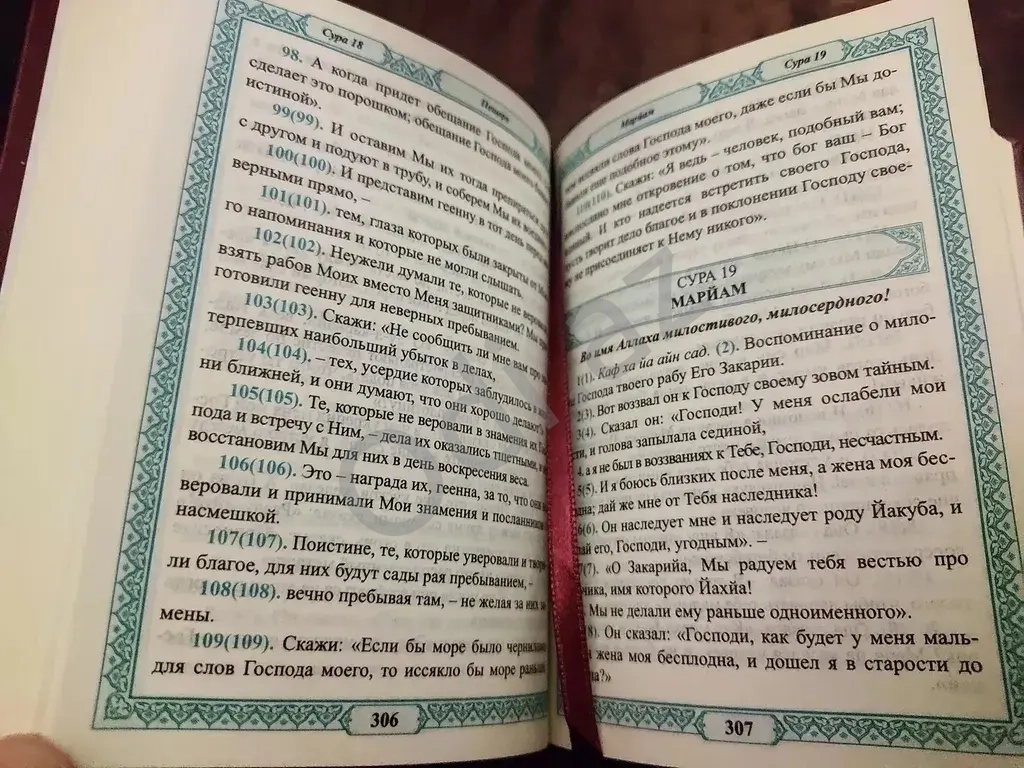 Сура 18
Пещера
98. А когда придет обещание Господа
сделает это порошком; обещание Господа моего
истиной».
99(99). И оставим Мы их тогда препираться
с другом и подуют в трубу, и соберем Мы их
100(100). И представим геенну в тот день
верными прямо, –
101(101). тем, глаза которых были закрыты от
го напоминания и которые не могли слышать.
102(102). Неужели думали те, которые не веровали
взять рабов Моих вместо Меня защитниками? Мы
готовили геенну для неверных пребыванием.
103(103). Скажи: «Не сообщить ли мне вам про
терпевших наибольший убыток в делах,
104(104). – тех, усердие которых заблудилось в
ни ближней, и они думают, что они хорошо делают?»
105(105). Те, которые не веровали в знамения их
пода и встречу с Ним, – дела их оказались тщетными,
восстановим Мы для них в день воскресения веса.
106(106). Это – награда их, геенна, за то, что они не
веровали и принимали Мои знамения и посланников
насмешкой.
107(107). Поистине, те, которые уверовали и твори-
ли благое, для них будут сады рая пребыванием, –
108(108). вечно пребывая там, – не желая за них за-
мены.
109(109). Скажи: «Если бы море было чернилами
для слов Господа моего, то иссякло бы море раньше,
306
Сура 19
Марйам
чем иссякли слова Господа моего, даже если бы Мы до-
бавили еще подобное этому».
110(110). Скажи: «Я ведь – человек, подобный вам;
ниспослано мне откровение о том, что бог ваш – Бог
единый. И кто надеется встретить своего Господа,
пусть творит дело благое и в поклонении Господу свое-
му не присоединяет к Нему никого».
СУРА 19
МАРЙАМ
Во имя Аллаха милостивого, милосердного!
1(1). Каф ха йа айн сад. (2). Воспоминание о мило-
Господа твоего рабу Его Закарии.
2(3). Вот воззвал он к Господу своему зовом тайным.
3(4). Сказал он: «Господи! У меня ослабели мои
и голова запылала сединой,
4. а я не был в воззваниях к Тебе, Господи, несчастным.
5(5). И я боюсь близких после меня, а жена моя бес-
дай же мне от Тебя наследника!
6(6). Он наследует мне и наследует роду Йакуба, и
его, Господи, угодным». –
7(7). «О Закарийа, Мы радуем тебя вестью про
имя которого Йахйа!
Мы не делали ему раньше одноименного».
8). Он сказал: «Господи, как будет у меня маль-
жена моя бесплодна, и дошел я в старости до
307